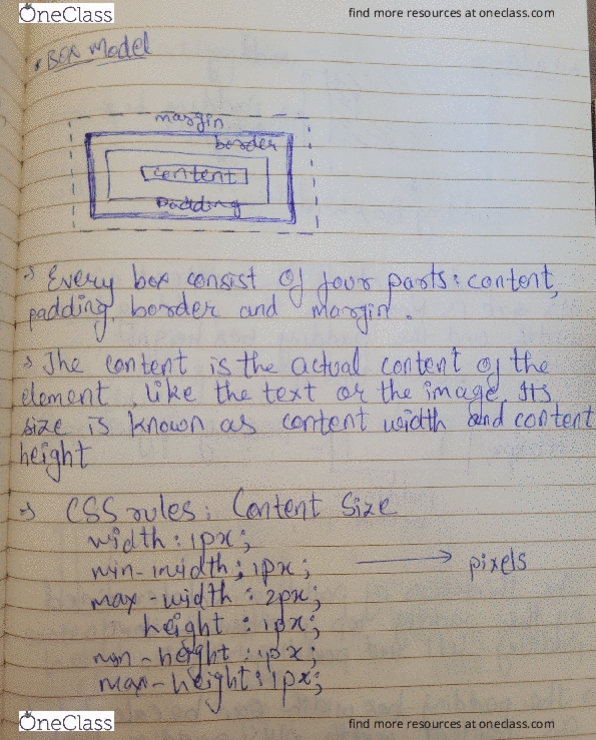 OneClass
find more resources at oneclass.com
Box Model
margin
border
content
padding
Every box consist of four parts: content,
padding, border and margin.
The content is the actual content of the
element, like the text or the image. Its
size is known as content width and content
height
CSS rules: Content Size
width: 1px;
min-width: 1px;
pixels
max-width: 2px;
height: 1px;
min-height: 1px;
max-height: 1px;
OneClass
find more resources at oneclass.com